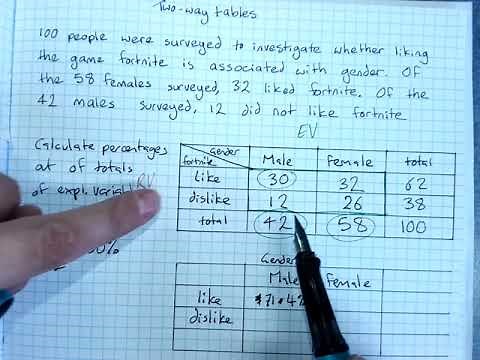 Two-way tables
100 people were surveyed to investigate whether liking
the game fortnite is associated with gender. Of
the 58 females surveyed, 32 liked fortnite. Of the
42 males surveyed, 12 did not like fortnite
EV
Calculate percentages
out of totals
of expl. variable
RV
Gender
fortnite Male Female total
like 30 32 62
dislike 12 26 38
total 42 58 100
Gender
Male Female
like 71.42
dislike